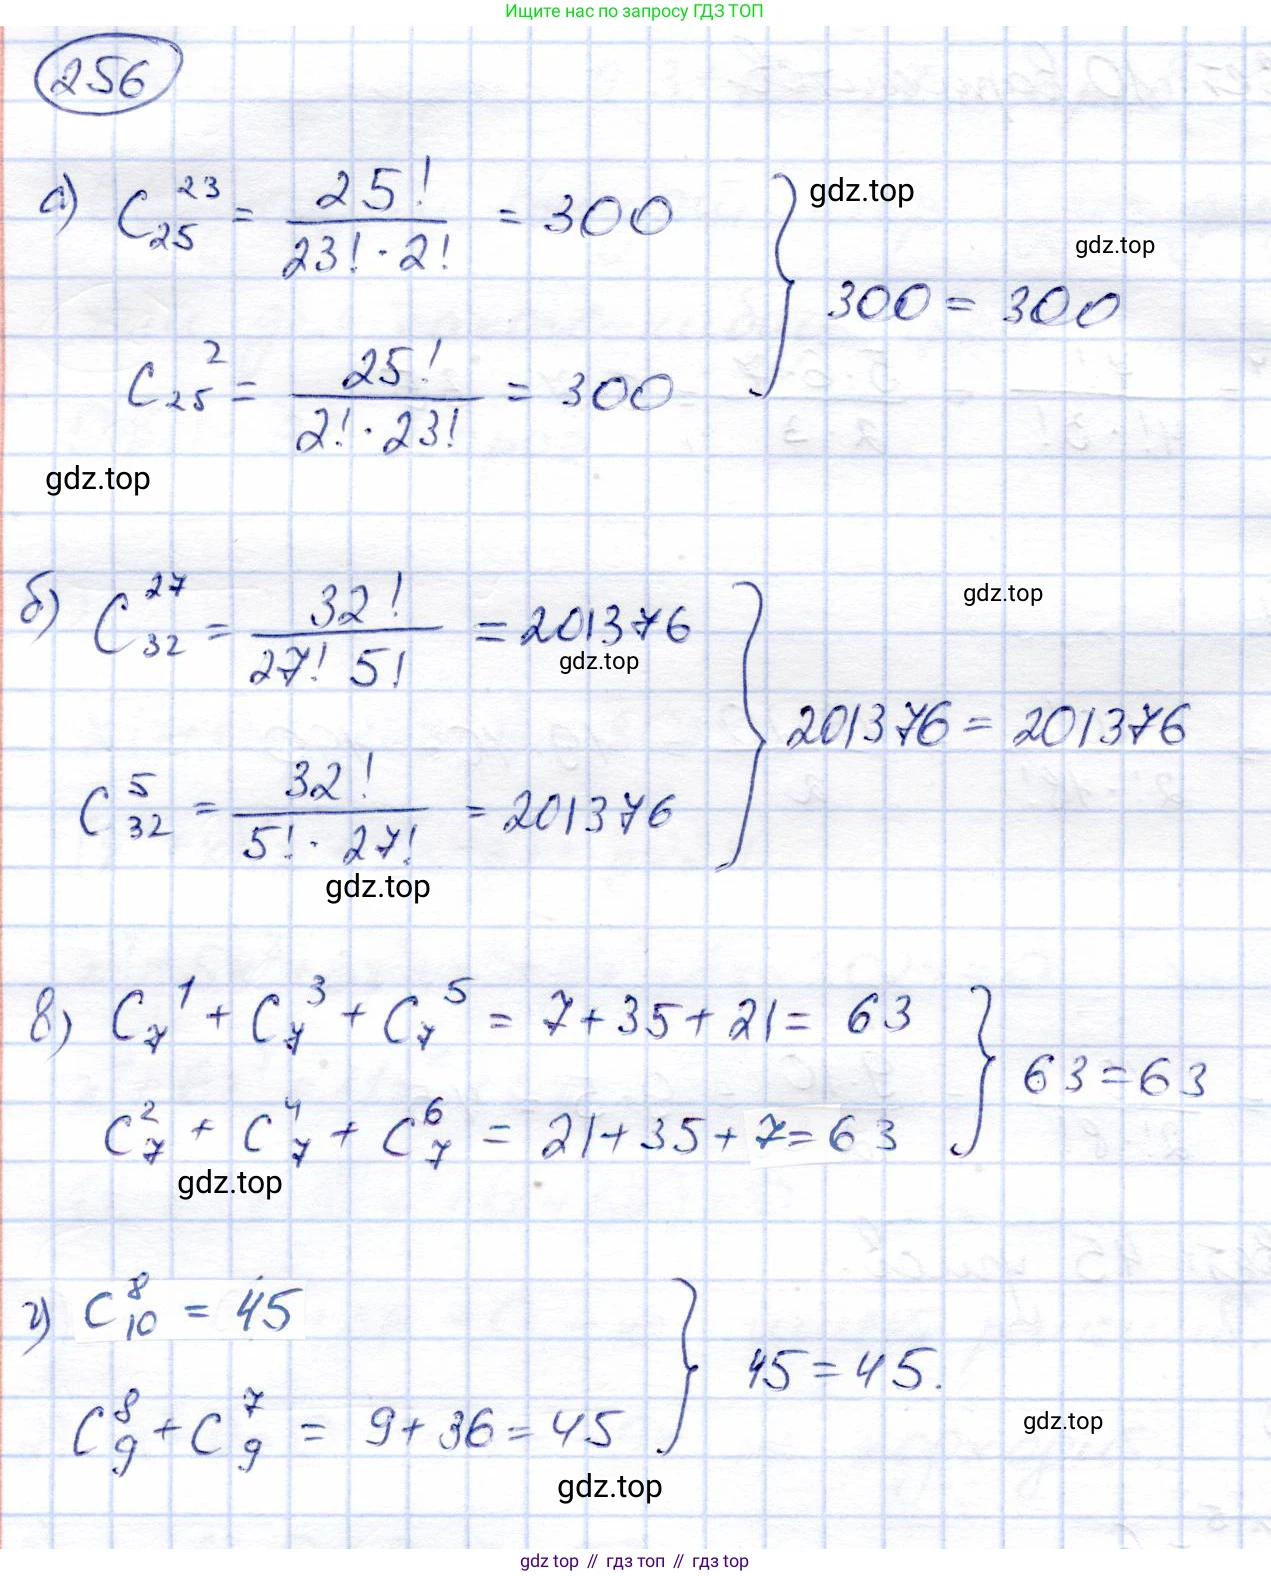 Ищите нас по запросу ГДЗ ТОП
256
а) C₂₅²³ = 25! / (23! · 2!) = 300
gdz.top
gdz.top
300 = 300
C₂₅² = 25! / (2! · 23!) = 300
gdz.top
б) C₃₂²⁷ = 32! / (27! 5!) = 201376
gdz.top
gdz.top
201376 = 201376
C₃₂⁵ = 32! / (5! · 27!) = 201376
gdz.top
в) C₇¹ + C₇³ + C₇⁵ = 7 + 35 + 21 = 63
63 = 63
C₇² + C₇⁴ + C₇⁶ = 21 + 35 + 7 = 63
gdz.top
г) C₁₀⁸ = 45
45 = 45.
C₉⁸ + C₉⁷ = 9 + 36 = 45
gdz.top
gdz.top
gdz top // гдз топ // гдз top